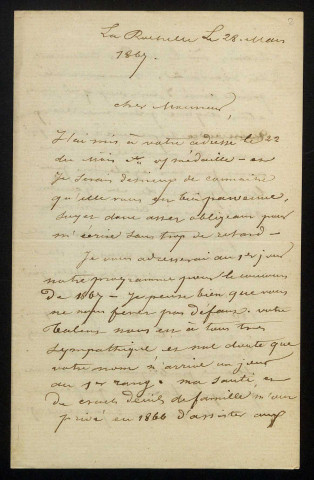 2
La Rochelle le 28 Mars
1867.
cher Monsieur,
J'ai mis à votre adresse le 22
du Mois médaille - et
Je serais désireux de connaître
qu'elle vous est bien parvenue,
soyez donc assez obligeant pour
m'écrire sans trop de retard -
Je vous adresserai au 1er jour
notre programme pour le concours
de 1867 - Je pense bien que vous
ne nous ferez pas défaut. votre
talent nous est à tous très
sympathique et nul doute que
votre nom n'arrive un jour
au 1er rang. ma santé, et
de cruels deuils de famille m'ont
privé en 1866 d'assister aux